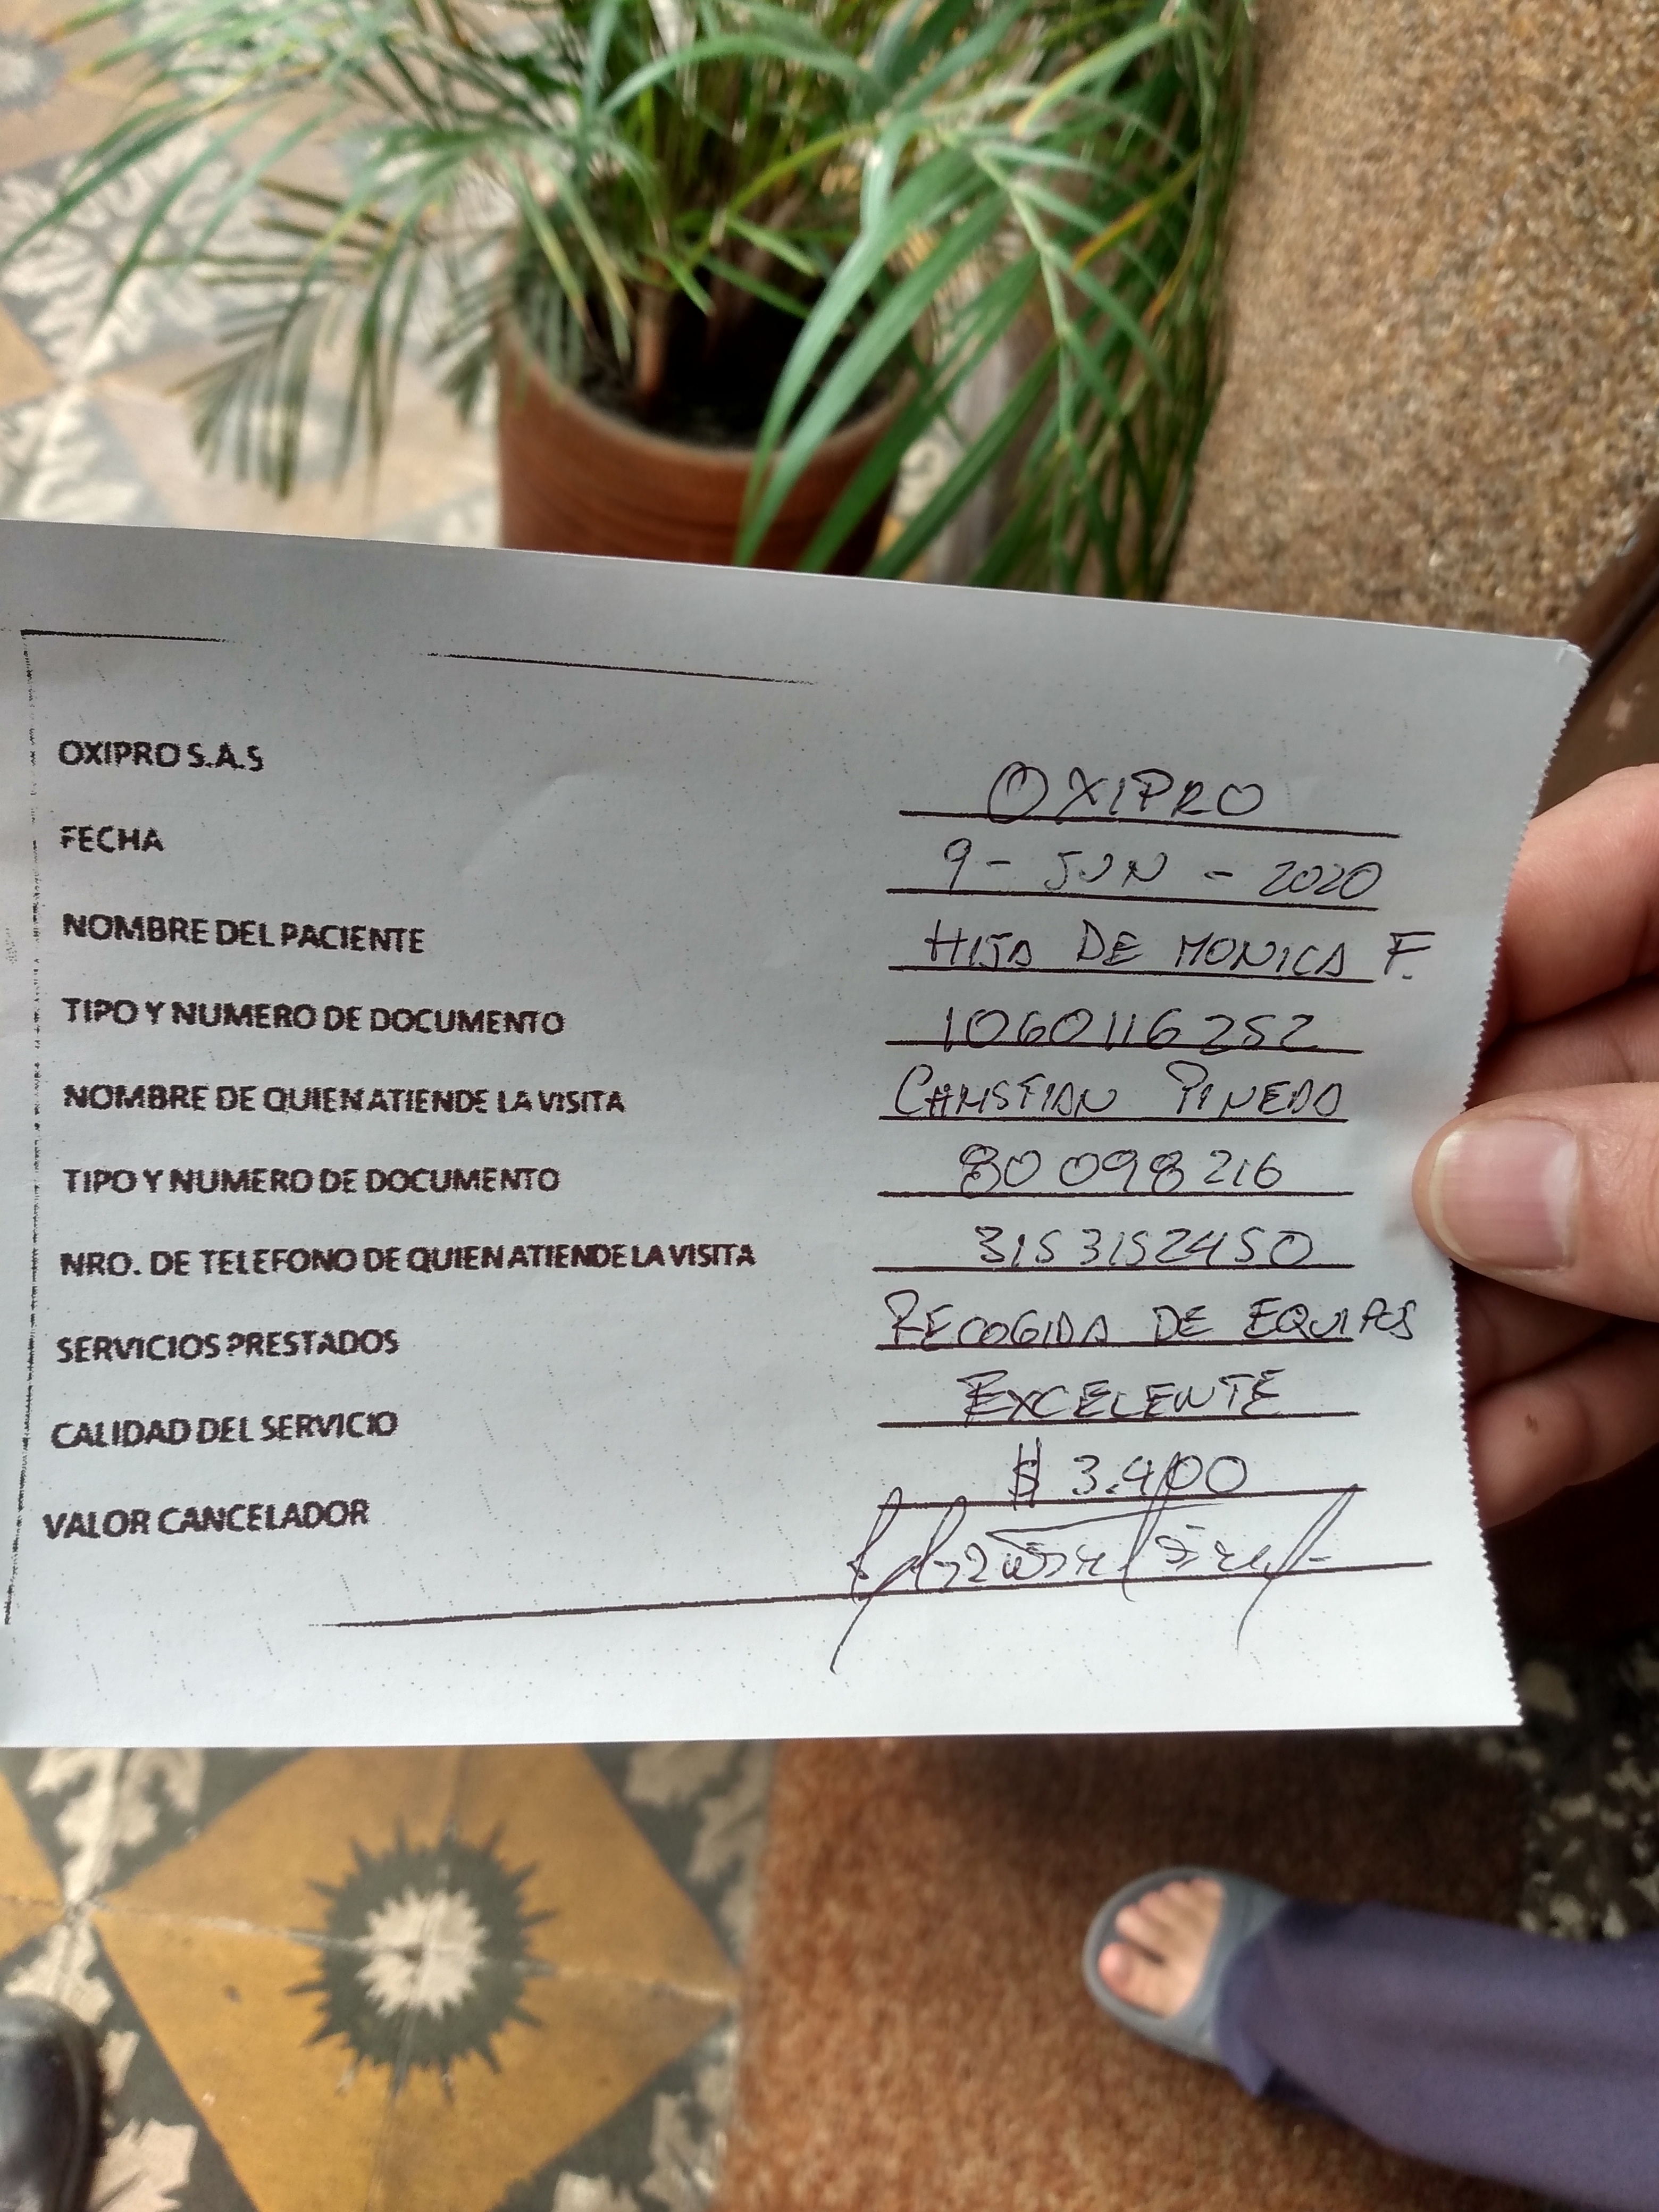 OXIPRO S.A.S OXIPRO
FECHA 9 - JUN - 2020
NOMBRE DEL PACIENTE HIJA DE MONICA F.
TIPO Y NUMERO DE DOCUMENTO 1060116252
NOMBRE DE QUIEN ATIENDE LA VISITA CHRISTIAN PINEDA
TIPO Y NUMERO DE DOCUMENTO 80098216
NRO. DE TELEFONO DE QUIEN ATIENDE LA VISITA 3153152450
SERVICIOS PRESTADOS RECOGIDA DE EQUIPOS
CALIDAD DEL SERVICIO EXCELENTE
VALOR CANCELADOR $ 3.400